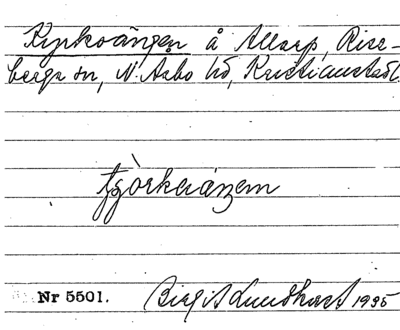 Kyrkoängen å Allarp, Rise-
berga sn, N. Åsbo hd, Kristianstads l.
Nr 5501. Birgit Lundkvist 1935